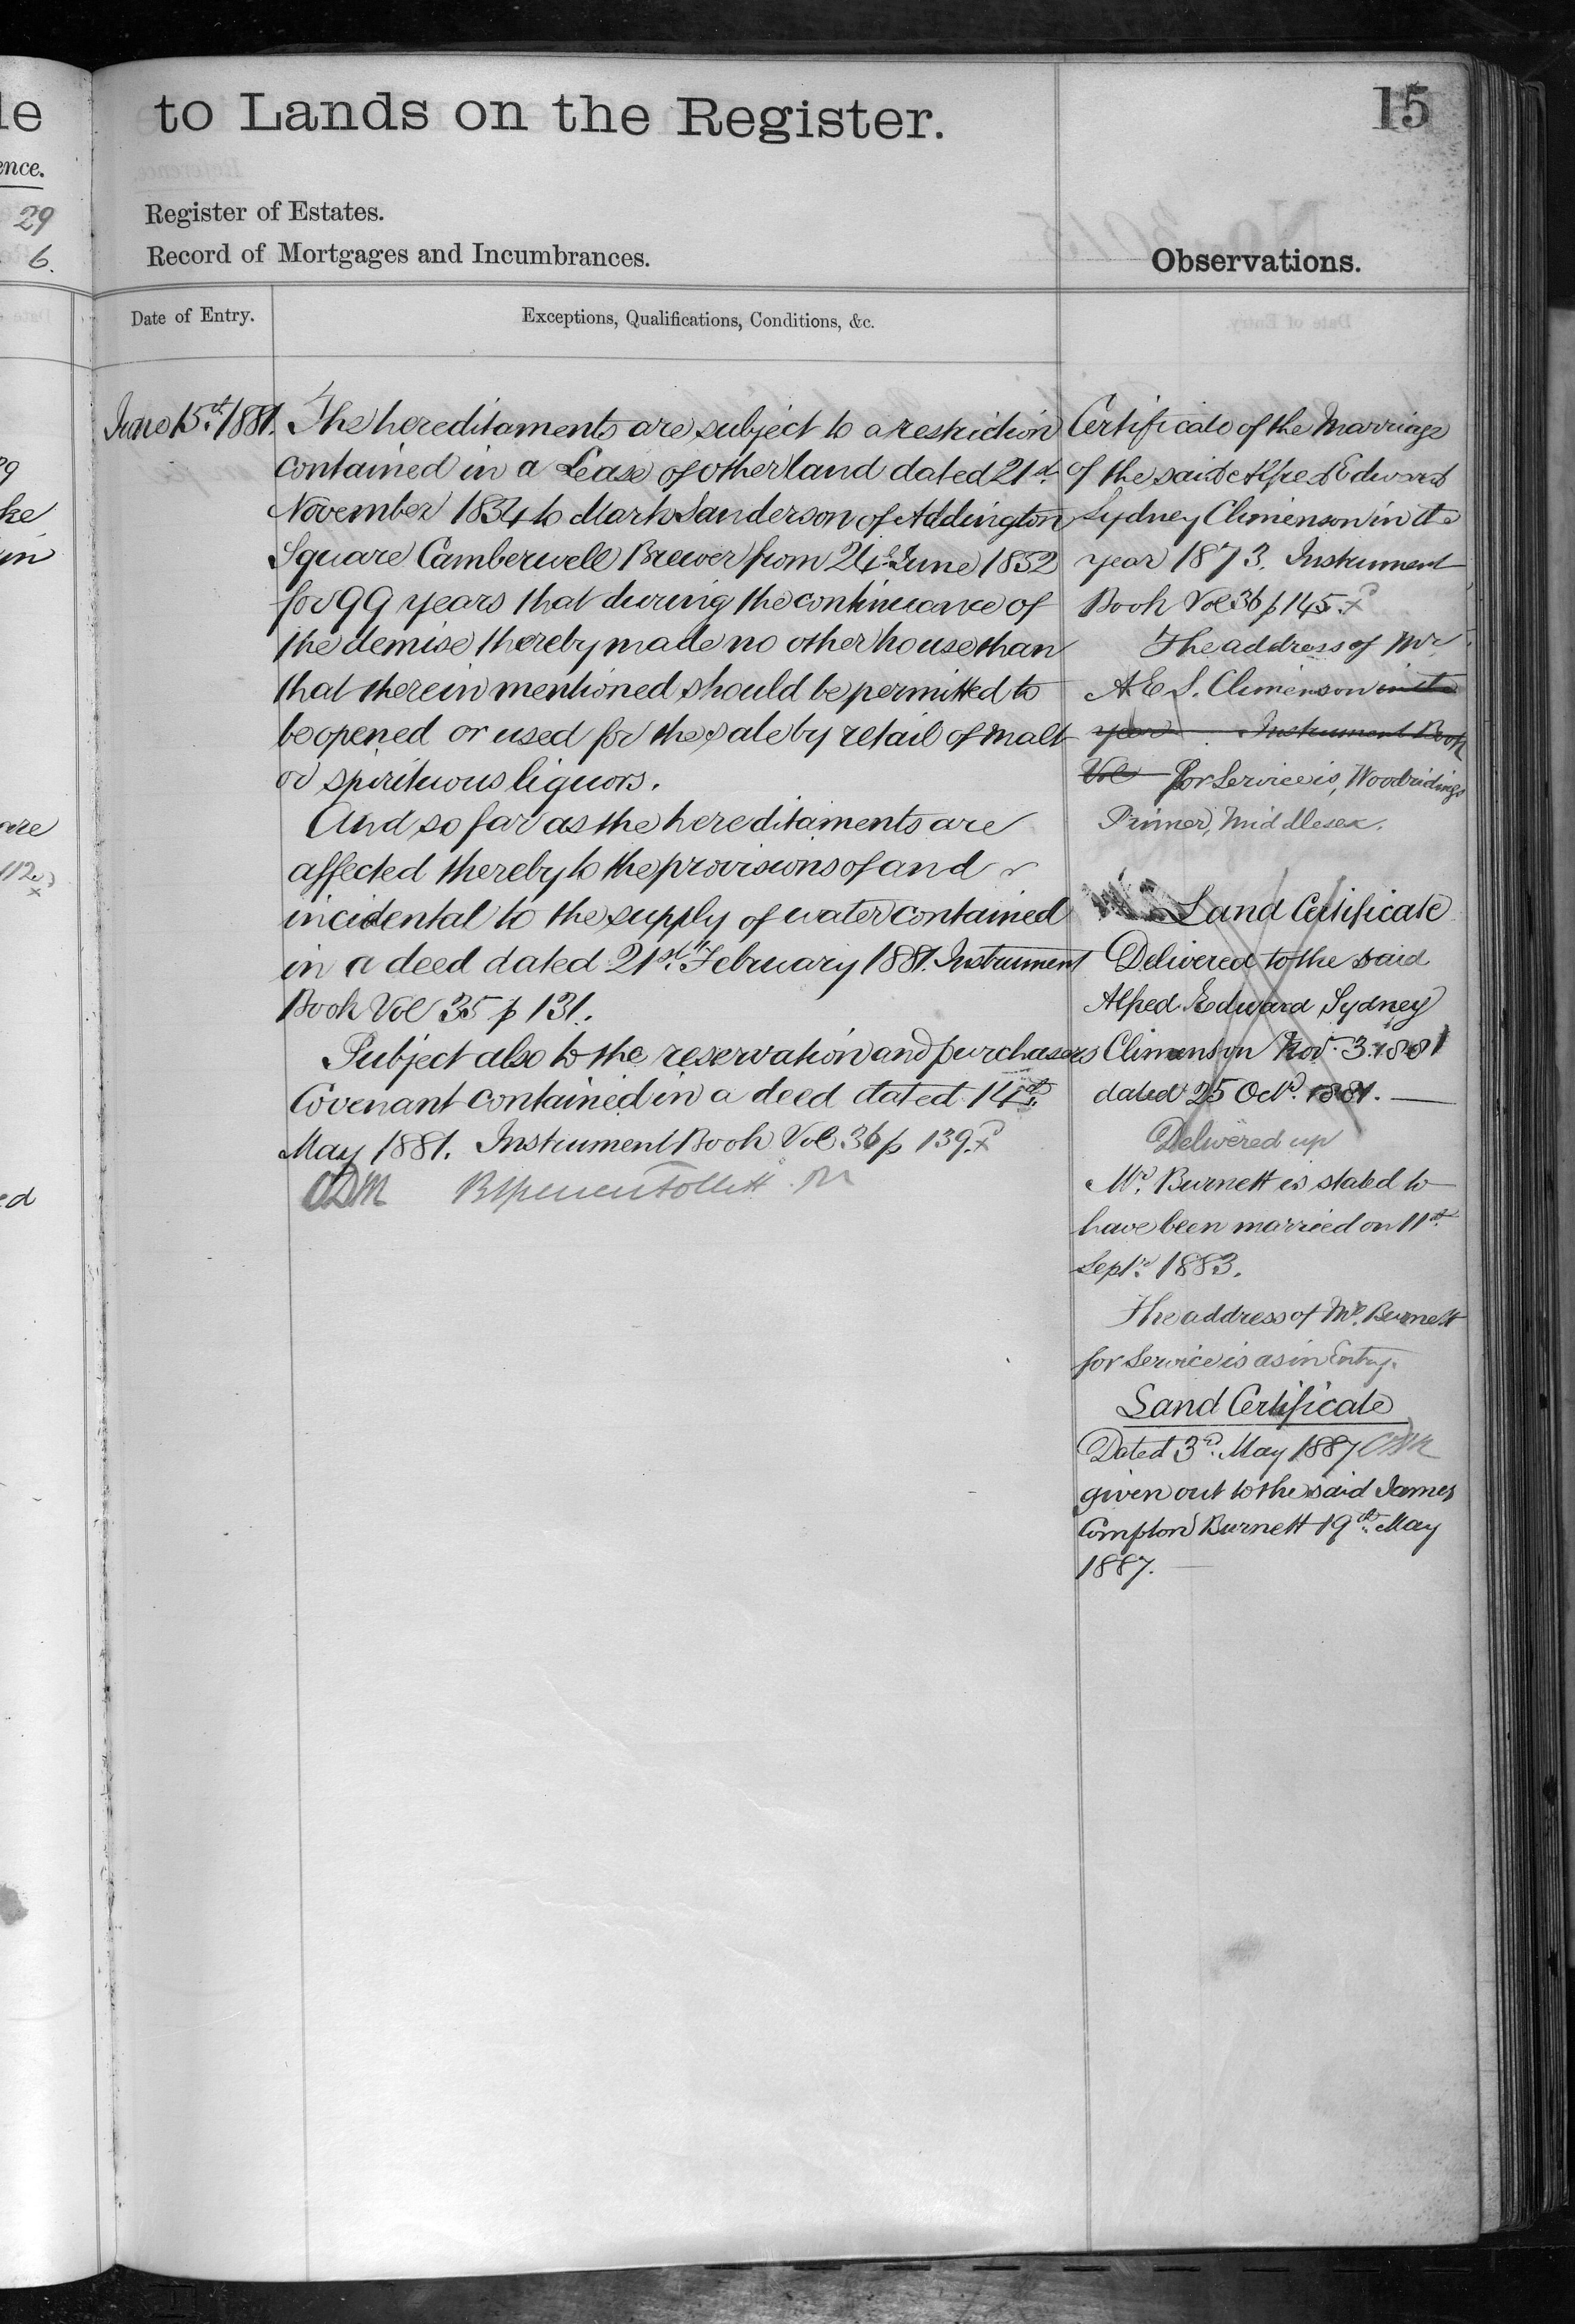 le
ence.
29
6.
29
ke
in
are
112
ed
to Lands on the Register.
15
Register of Estates.
Record of Mortgages and Incumbrances.
Observations.
Date of Entry.
Exceptions, Qualifications, Conditions, &c.
June 15th 1881.
The hereditaments are subject to a restriction
contained in a Lease of other land dated 21st
November 1834 to Mark Sanderson of Addington
Square Camberwell Brewer from 24th June 1832
for 99 years that during the continuance of
the demise thereby made no other house than
that therein mentioned should be permitted to
be opened or used for the sale by retail of malt
or spirituous liquors.
And so far as the hereditaments are
affected thereby to the provisions of and
incidental to the supply of water contained
in a deed dated 21st February 1881. Instrument
Book Vol 35 p 131.
Subject also to the reservation and purchasers
Covenant contained in a deed dated 14th
May 1881. Instrument Book Vol 36 p 139.
Certificate of the Marriage
of the said Alfred Edward
Sydney Climenson in the
year 1873. Instrument
Book Vol 36 p 145.
The address of Mr
A. E. S. Climenson in the
year Instrument Book
Vol for Service is, Woodridings
Pinner, Middlesex.
Land Certificate
Delivered to the said
Alfred Edward Sydney
Climenson Nov. 3. 1881
dated 25 Octr. 1881.
Delivered up
Mr. Burnett is stated to
have been married on 11th
Septr. 1883.
The address of Mr. Burnett
for Service is as in Entry.
Land Certificate
Dated 3rd. May 1887
given out to the said James
Compton Burnett 19th. May
1887.